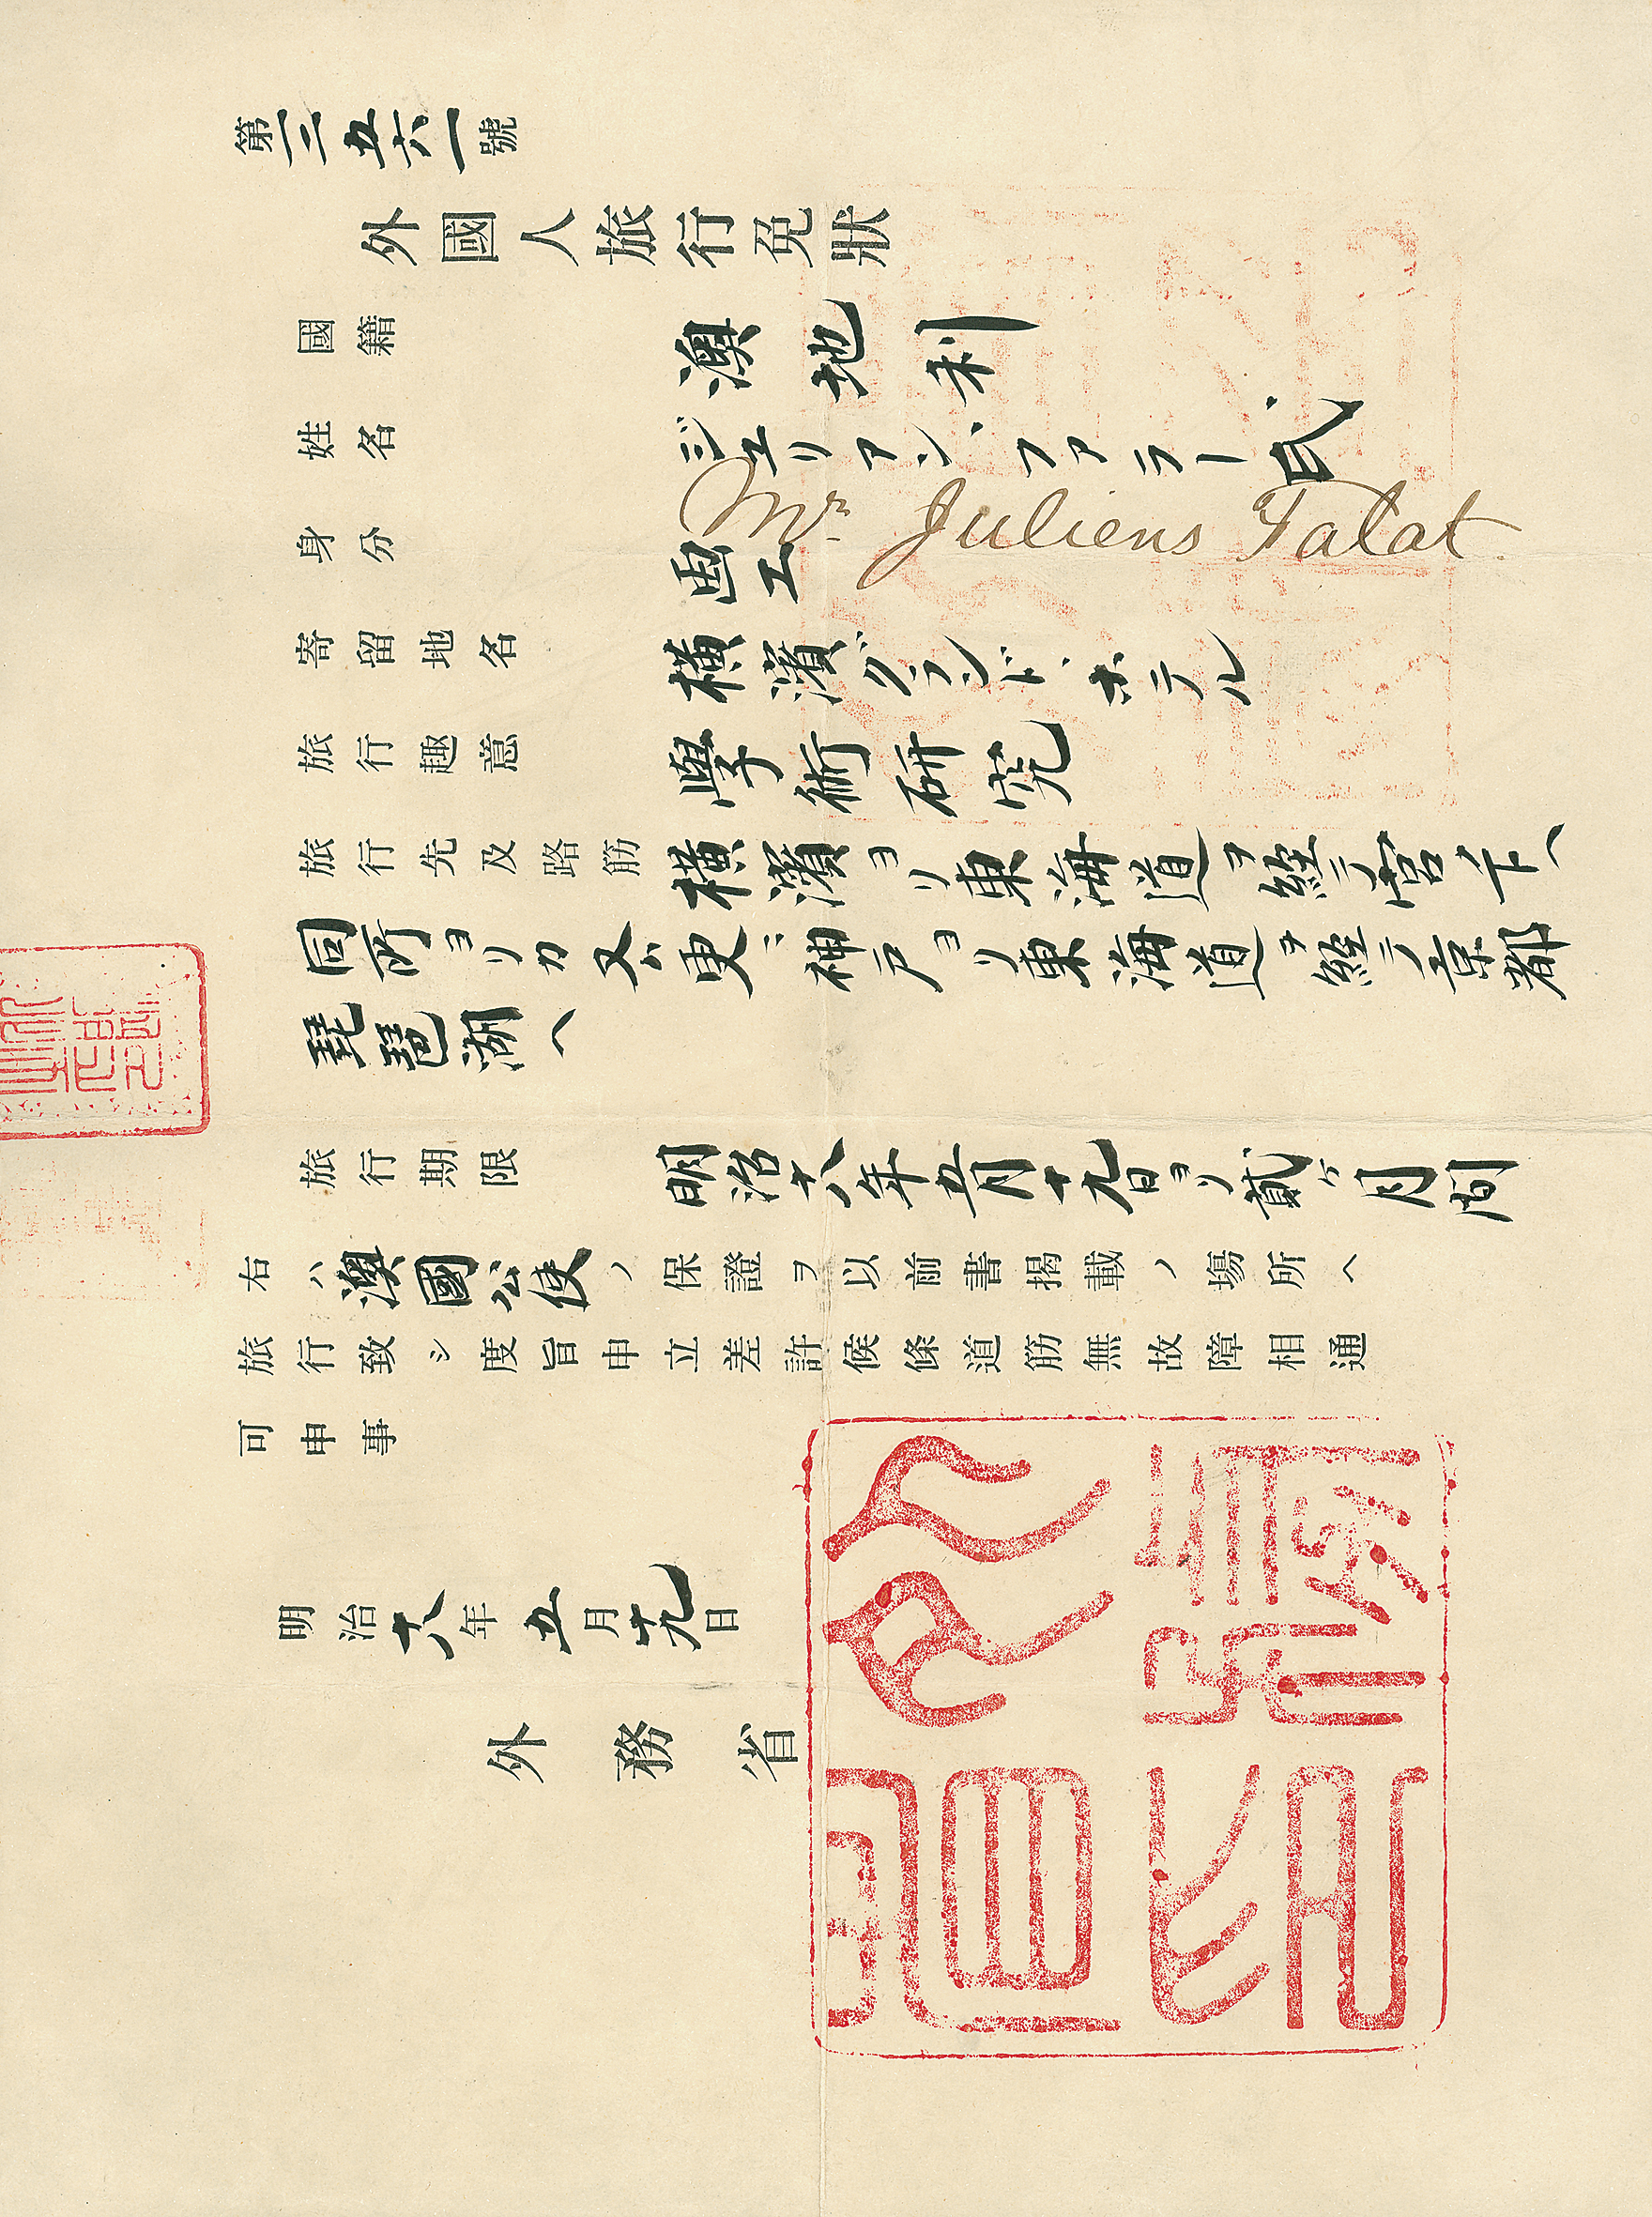 第三五六一號
外國人旅行免狀
國籍 澳地利
姓名 ジュリアン、ファラー氏
Mr. Juliens Falat.
身分 画工
寄留地名 橫濱グランド、ホテル
旅行趣意 學術研究
旅行先及路筋 橫濱ヨリ東海道ヲ經テ宮ノ下ヘ
同所ヨリカ又ハ更ニ神戸ヨリ東海道ヲ經テ京都
琵琶湖ヘ
旅行期限 明治十八年五月十九日ヨリ貳ケ月間
右ハ澳國公使ノ保證ヲ以前書揭載ノ場所ヘ
旅行致シ度旨申立差許候條道筋無故障相通
可申事
明治十八年五月十九日
外務省